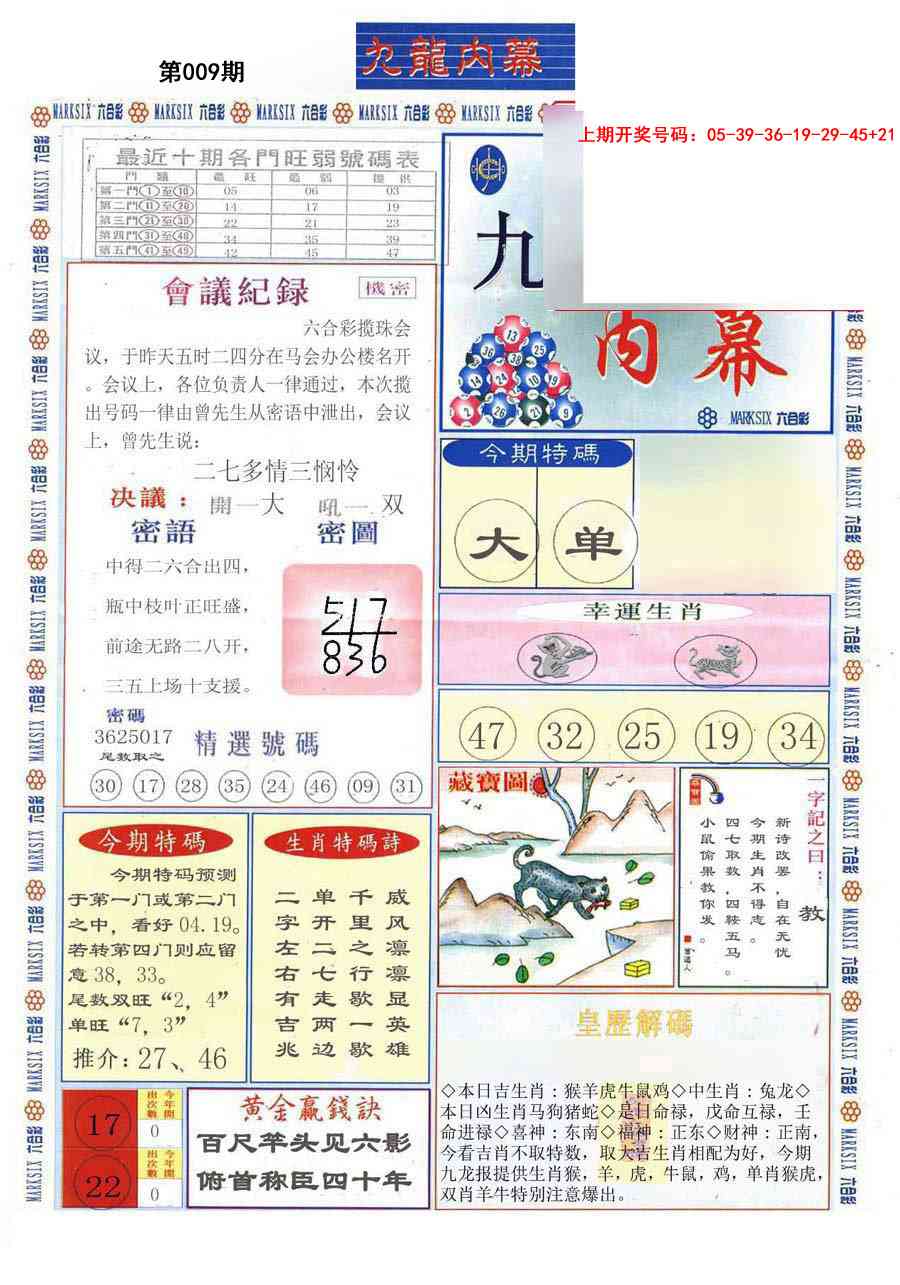 第009期
九龍内幕
MARKSIX 六合彩 MARKSIX 六合彩 MARKSIX 六合彩 MARKSIX 六合彩 MARKSIX 六合彩
上期开奖号码：05-39-36-19-29-45+21
最近十期各門旺弱號碼表
第一門①至⑩ 05 06 03
第二門⑪至⑳ 14 17 19
第三門㉑至㉚ 22 21 23
第四門㉛至㊵ 34 35 39
第五門㊶至㊾ 42 45 47
九
内幕
13
36 38 25
14 24 10 19
2 26 21 9
MARKSIX 六合彩
會議紀録
機密
六合彩揽珠会
议，于昨天五时二四分在马会办公楼名开
。会议上，各位负责人一律通过，本次揽
出号码一律由曾先生从密语中泄出，会议
上，曾先生说：
二七多情三悯怜
决議：開一大 吼一双
密語 密圖
中得二六合出四，
瓶中枝叶正旺盛，
前途无路二八开，
三五上场十支援。
517
836
密碼
3625017
尾数取之
精選號碼
30 17 28 35 24 46 09 31
今期特碼
大 单
幸運生肖
47 32 25 19 34
藏寶圖
一字記之曰：教
新诗改罢，自在无忧
今期生肖不得志。
四七取数，四鞍五马。
小鼠偷果教你发。
今期特碼
今期特码预测
于第一门或第二门
之中，看好04.19。
若转第四门则应留
意38，33。
尾数双旺“2，4”
单旺“7，3”
推介：27、46
生肖特碼詩
威风凛凛显英雄
千里之行歇一歇
单开二七走两边
二字左右有吉兆
17 出次數 今年開 0
22 出次數 今年開 0
黃金贏錢訣
百尺竿头见六影
俯首称臣四十年
皇歷解碼
◇本日吉生肖：猴羊虎牛鼠鸡◇中生肖：兔龙◇
本日凶生肖马狗猪蛇◇是日命禄，戊命互禄，壬
命进禄◇喜神：东南◇福神：正东◇财神：正南，
今看吉肖不取特数，取大吉生肖相配为好，今期
九龙报提供生肖猴，羊，虎，牛鼠，鸡，单肖猴虎，
双肖羊牛特别注意爆出。